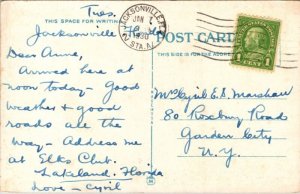 Tues,
THIS SPACE FOR WRITING
JACKSONVILLE, FLA.
JAN 7
1930
STA. A
POST CARD
THIS SIDE IS FOR ADDRESS
1 CENT 1
Jacksonville Fla
Dear Anne,
Arrived here at
noon today - Good
weather & good
roads all the
way - Address me
at Elks Club.
Lakeland. Florida
Love - Cyril
Mrs Cyril E. S. Marshall
80 Roxbury Road
Garden City
N.Y.